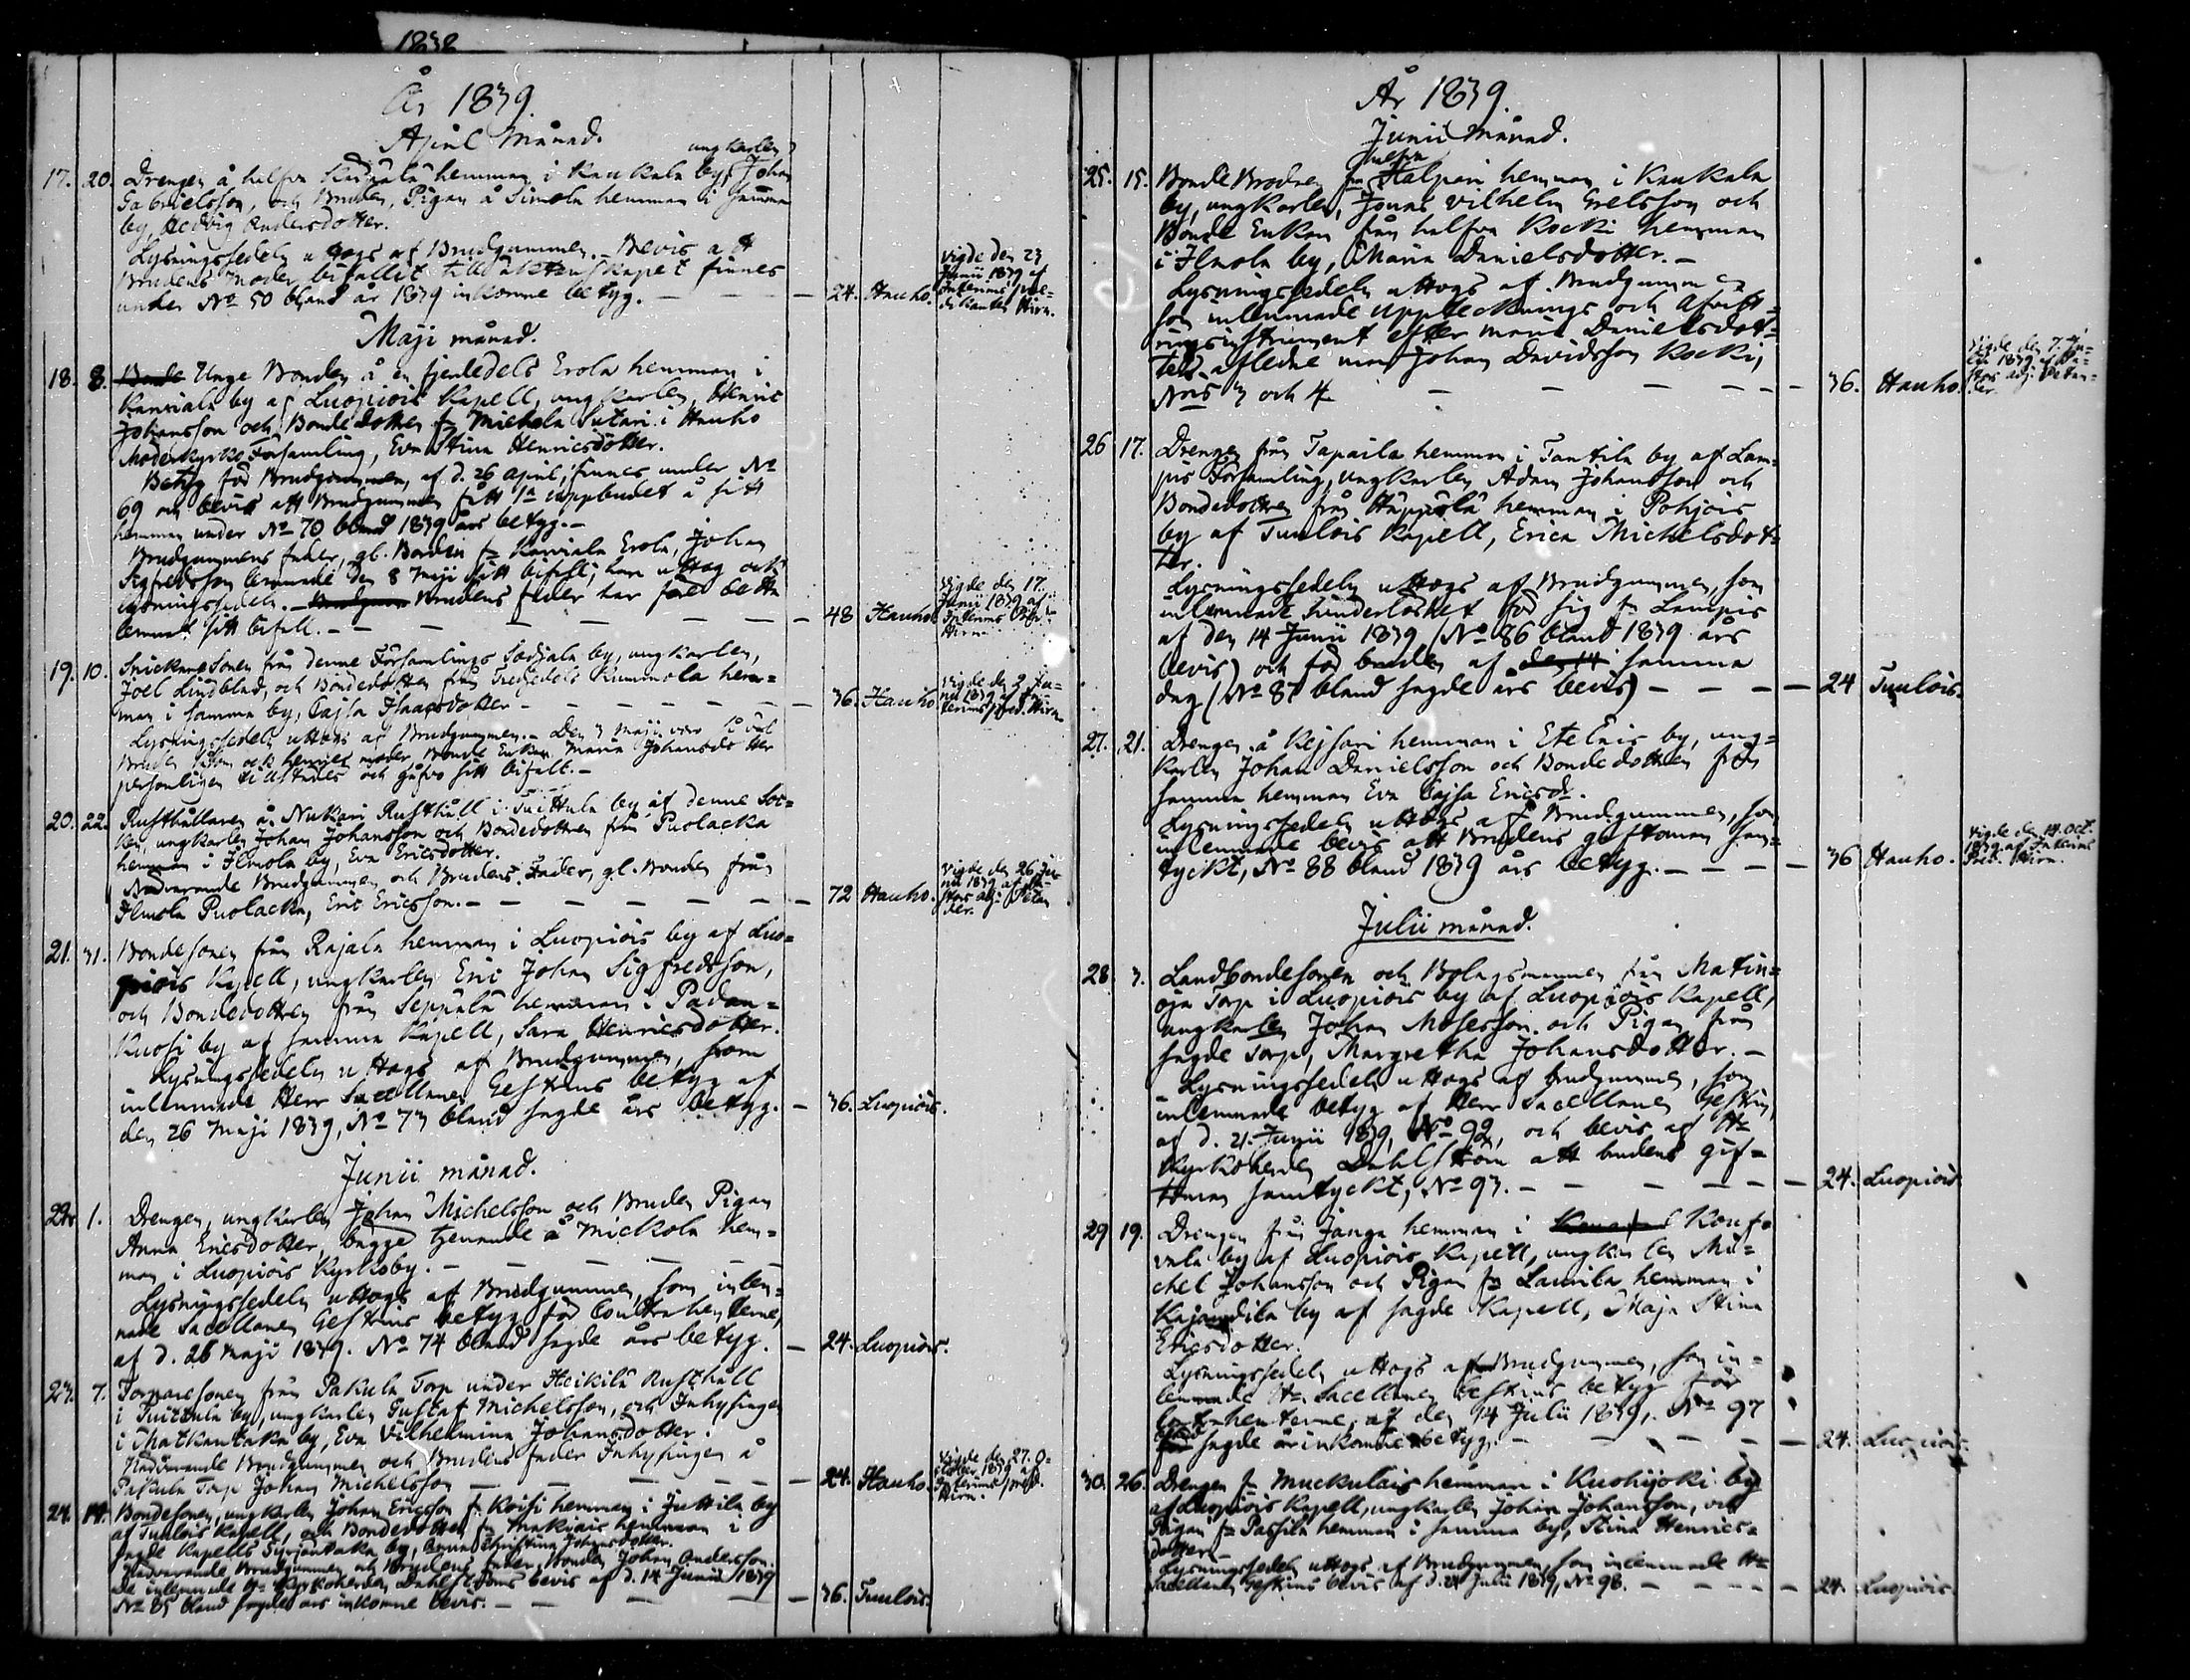 1838
År 1839.
April månad.
ungkarlen
17. 20. Drengen å halfva hemman i Kaukala by, Johan
Gabrielsson, och Bruden, Pigan å Simola hemman i samma
by, Hedvig Andersdotter.
Lysningssedeln uttogs af Brudgummen. Bevis att
Brudens Moder bifallit till äktenskapet finnes
under No 50 bland år 1839 inkomne betyg. — 24. Hauho.
Vigde den 23
Junii 1839 af
Interims pre-
dikanten Hirn.
Maji månad.
18. 8. Bonde Unge Bonden å en fjerdedels Erola hemman i
Karviala by af Luopiois Kapell, ungkarlen, Henric
Johansson och Bondedottren fr Michola Sutari i Hauho
Moderkyrko Församling, Eva Stina Henricsdotter.
Betyg för Brudgummen, af d. 26 April, finnes under No
69 och bevis att Brudgummen fått 1a uppbudet å sitt
hemman under No 70 bland 1839 års betyg. —
Brudgummens fader, gl. Bonden fr Karviala Erola, Johan
Sigfredsson lemnade den 8 Maji sitt bifall; han uttog ock
lysningssedeln. — Brudens fader har före detta
lemnat sitt bifall. — 48 Hauho
Vigde den 17
Junii 1839 af
Interims Pred.
Hirn
19. 10. Snickaresonen från denne Församlings Sotjala by, ungkarlen,
Joel Lindblad, och Bondedottren från Tredjedels Rummola hem-
man i samma by, Cajsa Isaacsdotter — 36. Hauho
Vigde den 2 Ju-
nii 1839 af In-
terims pred. Hirn
Lysningssedeln uttogs af Brudgummen. — Den 3 Maji var så väl
Bruden som ock hennes moder Bonde Enkan Maria Johansdotter
personligen tillstädes och gåfvo sitt bifall. —
20. 22. Rusthållaren å Nukari Rusthåll i Tuittula by af denne Soc-
ken, ungkarlen Johan Johansson och Bondedottren från Puolacka
hemman i Ilmola by, Eva Ericsdotter.
Närvarande Brudgummen och Brudens Fader, gl. Bonden från
Ilmola Puolacka, Eric Ericsson. — 72 Hauho.
Vigde den 26 Ju-
nii 1839 af Pa-
stors adj. Petan
der.
21. 31. Bondesonen från Rajala hemman i Luopiois by af Luo-
piois Kapell, ungkarlen Eric Johan Sigfredsson,
och Bondedottren från Seppälä hemman i Padan-
kuosi by af samma Kapell, Sara Henricsdotter.
Lysningssedeln uttogs af Brudgummen, som
inlemnade Herr Sacellanen Gestrins betyg af
den 26 Maji 1839, No 73 bland sagde års betyg. — 36. Luopiois.
Junii månad.
22. 1. Drengen, ungkarlen Johan Michelsson och Bruden Pigan
Anna Ericsdotter, bägge tjenande å Mickola hem-
man i Luopiois Kyrkoby. —
Lysningssedeln uttogs af Brudgummen, som inlem-
nade Sacellanen Gestrins betyg för Contrahenterne,
af d. 26 Maji 1839. No 74 bland sagde års betyg. — 24. Luopiois.
23. 7. Torparesonen från Pakula Torp under Heikilä Rusthåll
i Tuittula by, ungkarlen Gustaf Michelsson, och Inhysingen
i Matkantaka by, Eva Vilhelmina Johansdotter.
Närvarande Brudgummen och Brudens fader Inhysingen å
Pakula Torp Johan Michelsson — 24. Hauho
Vigde den 27. O-
ctober 1839 af
Interims pred.
Hirn.
24. 14. Bondesonen, ungkarlen Johan Ericsson fr Koisi hemman i Juttila by
af Tuulois Kapell, och Bondedottren fr hemman i
sagde Kapells Syrjäntaka by, Anna Christina Johansdotter.
Närvarande Brudgummen och Brudens fader, Bonden Johan Andersson
de inlemnade Hr Kyrkoherden Dahlströms bevis af d. 14 Junii 1839
No 85 bland sagde års inkomne bevis. — 36. Tuulois.
År 1839.
Junii månad.
halfva
25. 15. Bonde Brodren fr Halpari hemman i Kaukala
by, ungkarlen, Jonas Vilhelm Erelsson och
Bonde Enkan från halfva Kocki hemman
i Ilmola by, Maria Danielsdotter. —
Lysningssedeln uttogs af Brudgummen
som inlemnade Uppteknings och Afvitt-
ringsinstrument efter Maria Danielsdot-
ters aflidne man Johan Davidsson Kocki,
Nris 3 och 4. — 36. Hauho.
Vigde den 7 Ju-
lii 1839 af Pa-
stors adj. Petan-
der.
26 17. Drengen från Tapaila hemman i Tantila by af Lam-
pis Församling, ungkarlen Adam Johansson och
Bondedottren från Häppölä hemman i Pohjois
by af Tuulois Kapell, Erica Michelsdot-
ter.
Lysningssedeln uttogs af Brudgummen, som
inlemnade hinderlöshet för sig fr Lampis
af den 14 Junii 1839 (No 86 bland 1839 års
bevis) och för bruden af den 14 samma
dag (No 87 bland sagde års bevis) — 24 Tuulois.
27. 21. Drengen å Kejsari hemman i Etelais by, ung-
karlen Johan Danielsson och Bondedottren från
samma hemman Eva Cajsa Ericsdr.
Lysningssedeln uttogs af Brudgummen, som
inlemnade bevis att Brudens giftoman sam-
tyckt, No 88 bland 1839 års betyg. — 36 Hauho.
Vigde den 14. Oct.
1839 af Interims
Pred. Hirn.
Julii månad.
28. 3. Landbondesonen och Bolagsmannen från Matin-
oja Torp i Luopiois by af Luopiois Kapell,
ungkarlen Johan Mosesson och Pigan från
sagde Torp, Margretha Johansdotter. —
Lysningssedeln uttogs af brudgummen, som
inlemnade betyg af Herr Sacellanen Gestrin,
af d. 21. Junii 1839, No 92, och bevis af Hr
Kyrkoherden Dahlström att brudens gif-
toman samtyckt, No 93. — 24. Luopiois
29 19. Drengen från Janga hemman i Kouk-
vala by af Luopiois Kapell, ungkarlen Mi-
chel Johansson och Pigan fr Laurila hemman i
Kajandila by af sagde Kapell, Maja Stina
Ericsdotter.
Lysningssedeln uttogs af Brudgummen, som in-
lemnade Hr Sacellanen Gestrins betyg för
Contrahenterne, af den 14 Julii 1839, No 97
bland sagde år inkomne betyg. — 24. Luopiois.
30. 26. Drengen fr Muckulais hemman i Kuohijoki by
af Luopiois Kapell, ungkarlen Johan Johansson, och
Pigan fr Passila hemman i samma by, Stina Henrics-
dotter. —
Lysningssedeln uttogs af Brudgummen, som inlemnade Hr
Sacellanen Gestrins bevis af d. 21 Julii 1839, No 98. — 24. Luopiois.